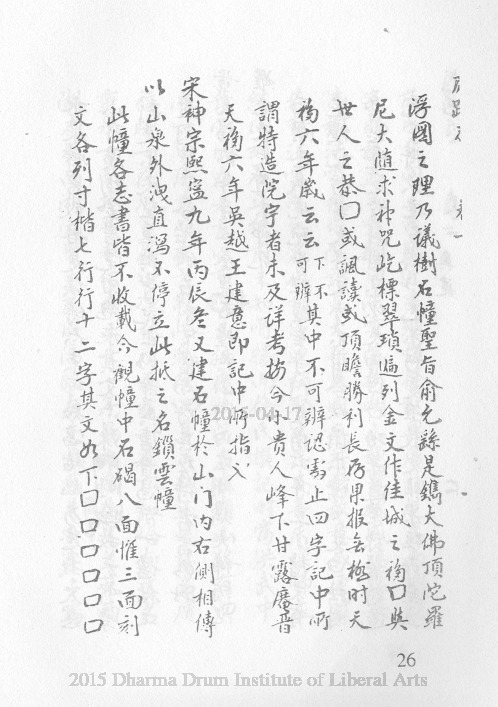 浮圖之理乃議樹石幢聖旨俞允繇是鐫大佛頂陀羅
尼大随求神咒屹標翠琰遍列金文作佳城之福口與
世人之恭口或諷讀或頂瞻勝利長存果報無極时天
福六年歲云云下不可辨其中不可辨認割止四字記中所
謂特造院宇者未及详考按今小贵人峰下甘露庵晋
天福六年吳越王建意即記中所指文
宋神宗熙寧九年丙辰冬又建石幢於山门内右側相傳
以山泉外洩直瀉不停立此抵之名鎖雲幢
此幢各志書皆不收載今觀幢中石碣八面惟三面刻
文各列寸楷七行行十二字其文如下口口口口口口口
26
2015-04-17
2015 Dharma Drum Institute of Liberal Arts